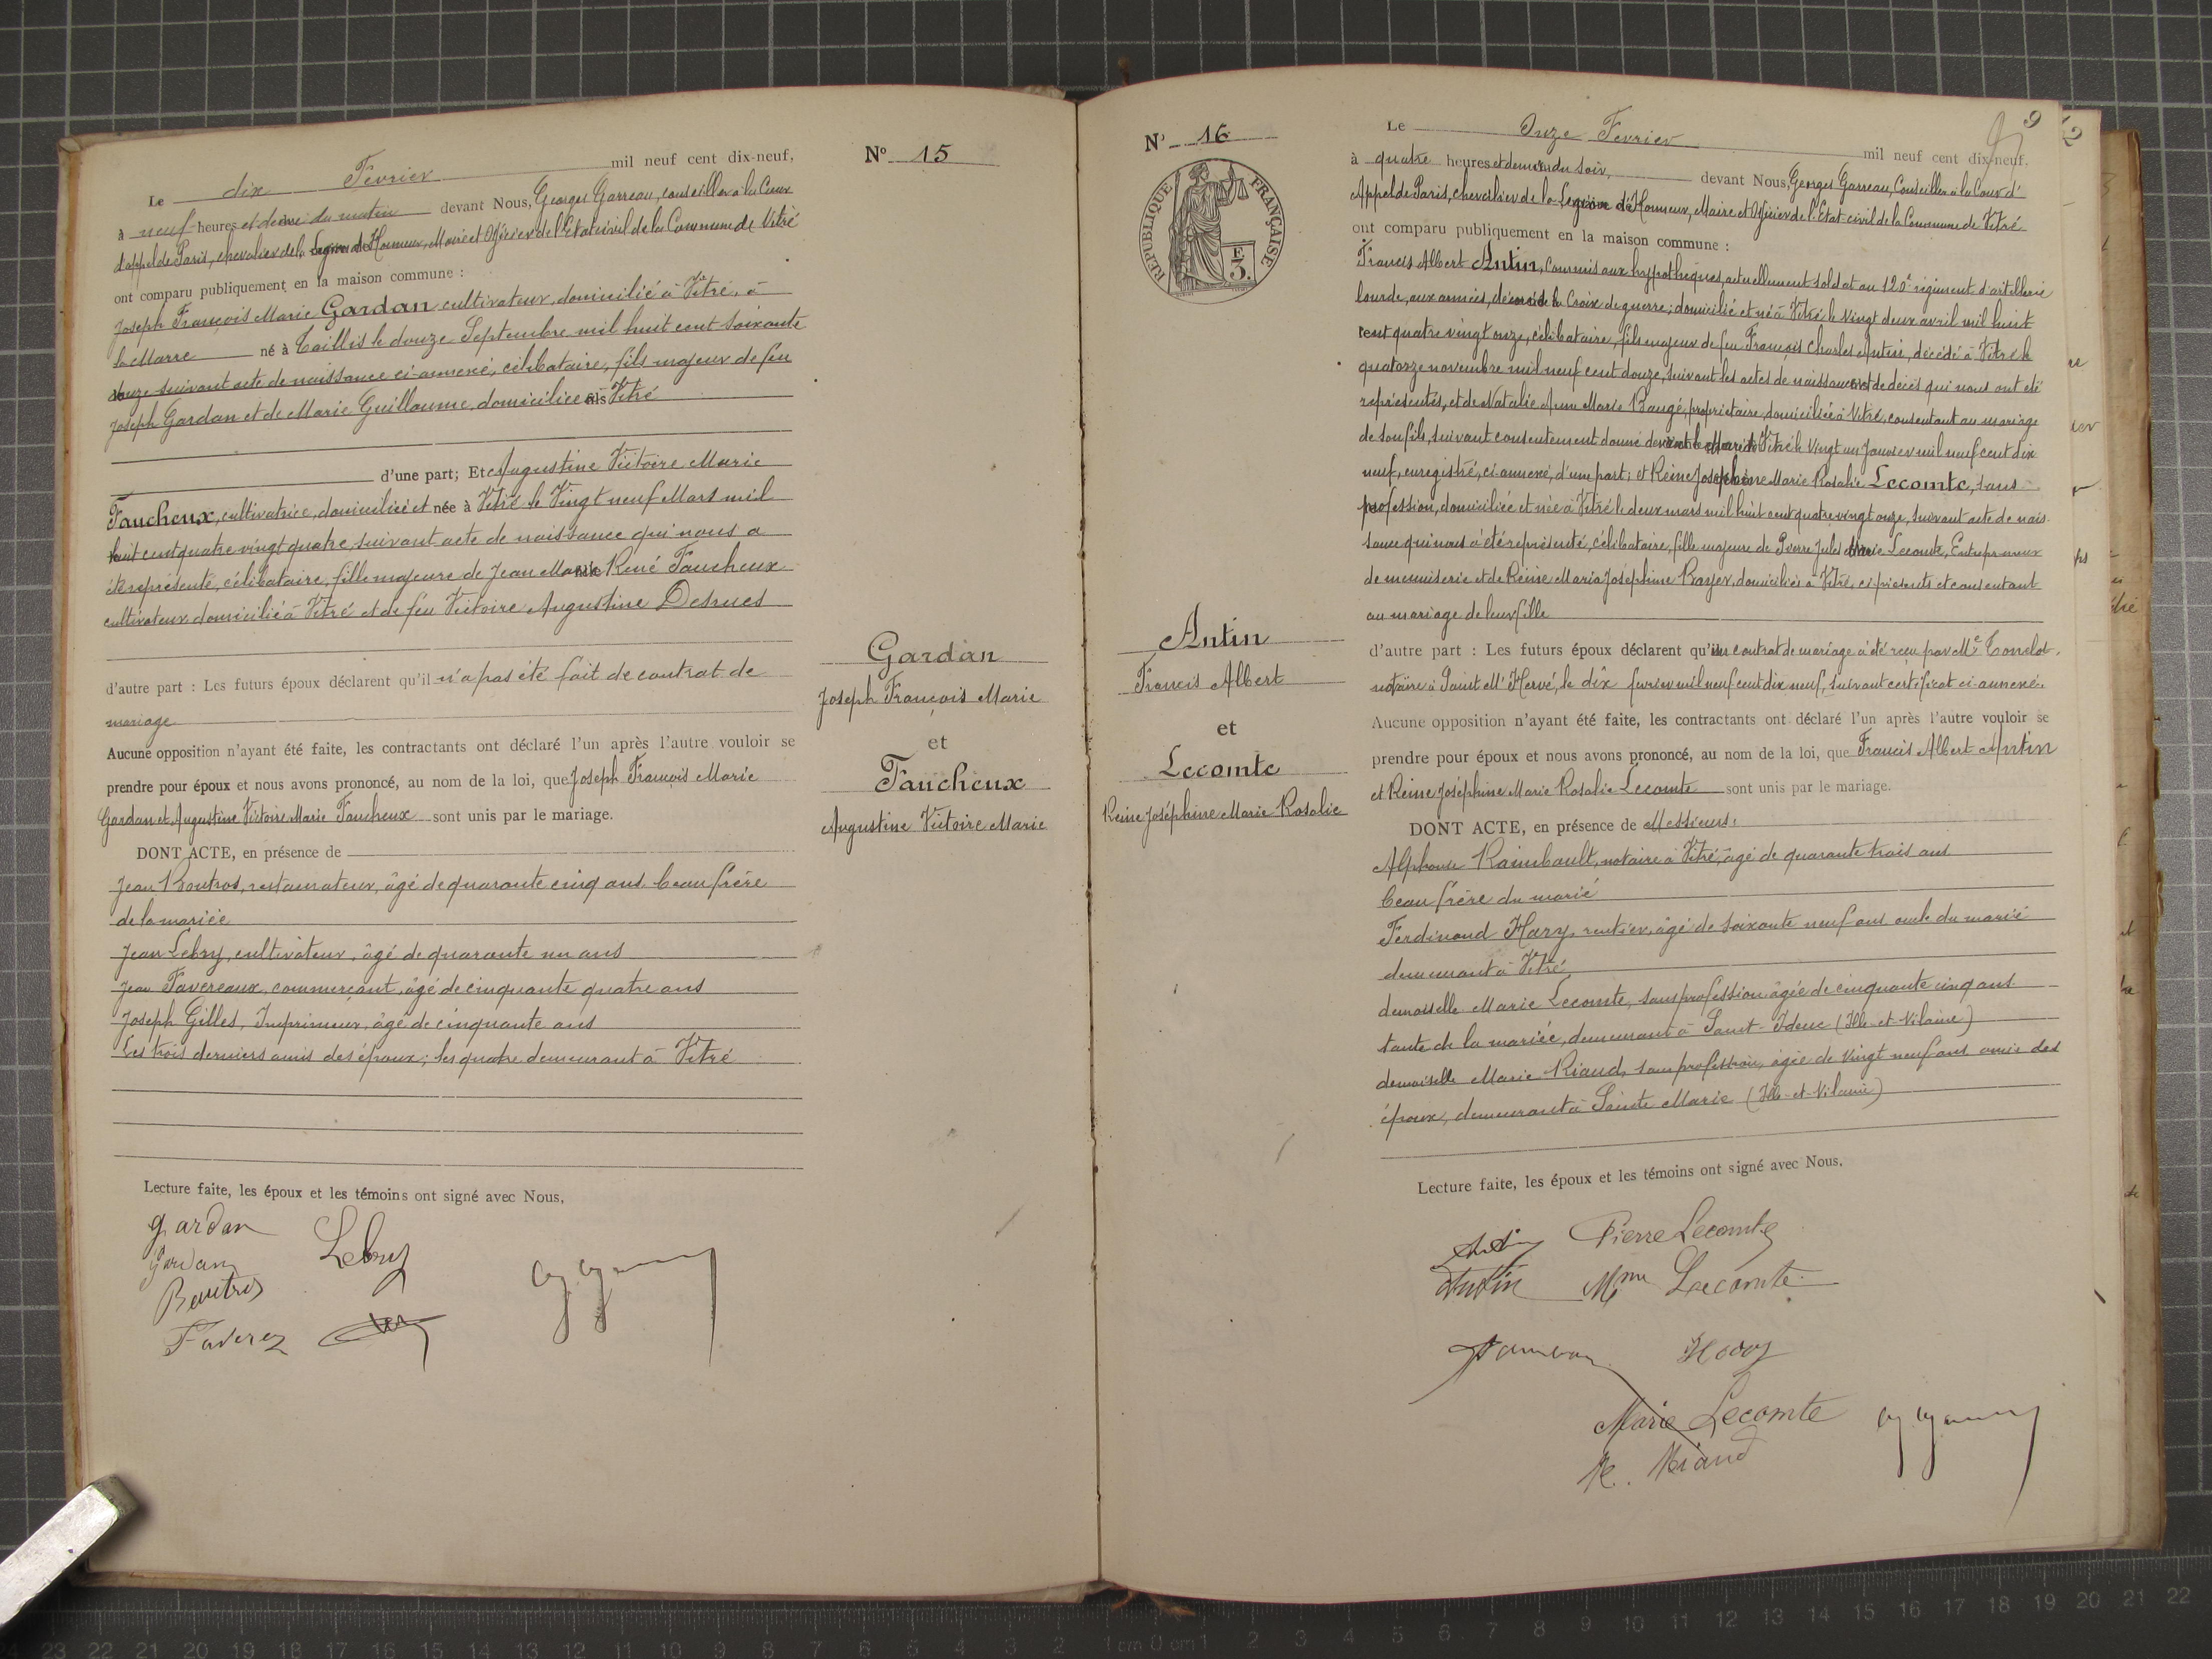 N° 15
Le dix Fevrier mil neuf cent dix-neuf,
à neuf heures et demie du matin devant Nous, Georges Garreau, conseiller à la Cour
d'appel de Paris, chevalier de la Legion d'Honneur, Maire et Officier de l'Etat civil de la Commune de Vitré
ont comparu publiquement en la maison commune :
Joseph François Marie Gardan cultivateur, domicilié à Vitré, à
la Marre né à Taillis le douze Septembre mil huit cent soixante
suivant acte de naissance ci-annexé, célibataire, fils majeur de feu
Joseph Gardan et de Marie Guillaume, domiciliée à Vitré
d'une part; Et Augustine Victoire Marie
Faucheux, cultivatrice, domiciliée et née à Vitré le Vingt neuf Mars mil
huit cent quatre vingt quatre, suivant acte de naissance qui nous a
été représenté, célibataire, fille majeure de Jean Marie René Faucheux
cultivateur domicilié à Vitré et de feu Victoire Augustine Desrues
d'autre part : Les futurs époux déclarent qu'il n'a pas été fait de contrat de
mariage
Aucune opposition n'ayant été faite, les contractants ont déclaré l'un après l'autre vouloir se
prendre pour époux et nous avons prononcé, au nom de la loi, que Joseph François Marie
Gardan et Augustine Victoire Marie Faucheux sont unis par le mariage.
DONT ACTE, en présence de
Jean Boutros, restaurateur, âgé de quarante cinq ans beau frère
de la mariée
Jean Lebry, cultivateur, âgé de quarante un ans
Jean Favereaux, commerçant, âgé de cinquante quatre ans
Joseph Gilles, Imprimeur, âgé de cinquante ans
Les trois derniers amis des époux; les quatre demeurant à Vitré
Lecture faite, les époux et les témoins ont signé avec Nous.
Gardan
Lebry
Boutros
Gardan
Joseph François Marie
et
Faucheux
Augustine Victoire Marie
N° 16
RÉPUBLIQUE FRANÇAISE
E
3.
Antin
Francis Albert
et
Lecomte
Reine Joséphine Marie Rosalie
9
12
Le Onze Fevrier mil neuf cent dix-neuf,
à quatre heures et demie du soir, devant Nous, Georges Garreau, Conseiller à la Cour d'
Appel de Paris, chevalier de la Legion d'Honneur, Maire et Officier de l'Etat-civil de la Commune de Vitré
ont comparu publiquement en la maison commune :
Francis Albert Antin, Commis aux hypothèques, actuellement soldat au 120e régiment d'artillerie
lourde, aux armées, décoré de la Croix de guerre; domicilié et né à Vitré le Vingt deux avril mil huit
cent quatre vingt onze, célibataire, fils majeur de feu François Charles Antin, décédé à Vitré le
quatorze novembre mil neuf cent douze, suivant les actes de naissance et de décès qui nous ont été
représentés, et de Natalie Anne Marie Baugé, propriétaire, domiciliée à Vitré, consentant au mariage
de son fils, suivant consentement donné devant le Maire de Vitré le Vingt un Janvier mil neuf cent dix
neuf, enregistré, ci-annexé, d'une part; et Reine Joséphine Marie Rosalie Lecomte, sans
profession, domiciliée et née à Vitré le deux mars mil huit cent quatre vingt onze, suivant acte de nais-
sance qui nous a été représenté, célibataire, fille majeure de Pierre Jules Marie Lecomte, Entrepreneur
de menuiserie et de Reine Maria Joséphine Royer, domiciliés à Vitré, ci présents et consentant
au mariage de leur fille
d'autre part : Les futurs époux déclarent qu'un contrat de mariage a été reçu par Me
notaire à Saint M' Hervé, le dix fevrier mil neuf cent dix neuf, suivant certificat ci-annexé.
Aucune opposition n'ayant été faite, les contractants ont déclaré l'un après l'autre vouloir se
prendre pour époux et nous avons prononcé, au nom de la loi, que Francis Albert Antin
et Reine Joséphine Marie Rosalie Lecomte sont unis par le mariage.
DONT ACTE, en présence de Messieurs:
Alphonse Raimbault, notaire à Vitré, âgé de quarante trois ans
beau frère du marié
Ferdinand Hary, rentier, âgé de soixante neuf ans oncle du marié
demeurant à Vitré
demoiselle Marie Lecomte, sans profession âgée de cinquante cinq ans
tante de la mariée, demeurant à Saint-Ideuc (Ille-et-Vilaine)
demoiselle Marie Riaud, sans profession, âgée de vingt neuf ans amie des
époux, demeurant à Sainte Marie (Ille-et-Vilaine)
Lecture faite, les époux et les témoins ont signé avec Nous.
Antin Pierre Lecomte
Antin Mme Lecomte
Marie Lecomte
M. Riaud
23 22 21 20 19 18 17 16 15 14 13 12 11 10 9 8 7 6 5 4 3 2 1 cm 0 cm 1 2 3 4 5 6 7 8 9 10 11 12 13 14 15 16 17 18 19 20 21 22